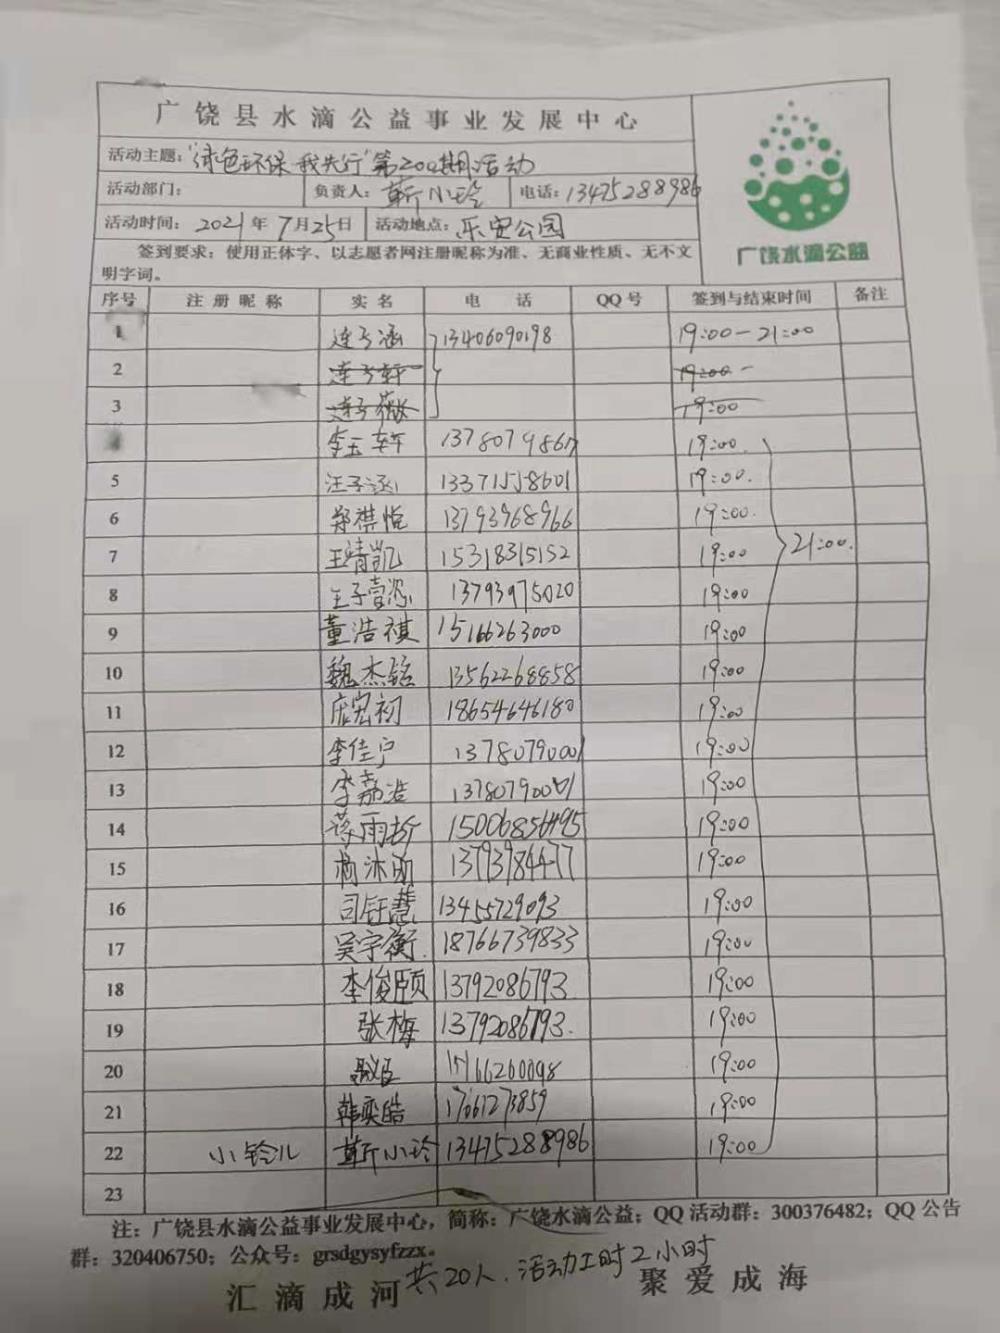 广饶县水滴公益事业发展中心
广饶水滴公益
活动主题：“绿色环保 我先行”第200期活动
活动部门： 负责人：靳小玲 电话：13475288986
活动时间：2021年7月25日 活动地点：乐安公园
签到要求：使用正体字、以志愿者网注册昵称为准、无商业性质、无不文
明字词。
序号 注册昵称 实名 电话 QQ号 签到与结束时间 备注
1 连子涵 13406090198 19:00-21:00
2 连子轩 19:00-
3 连子薇 19:00
4 李玉轩 13780798617 19:00
5 汪子涵 13371558601 19:00
6 郑祺怡 13793968966 19:00
7 王靖凯 15318315152 19:00 21:00
8 王子萱 13793975020 19:00
9 董浩祺 15166263000 19:00
10 魏杰铭 13562268858 19:00
11 庞宏初 18654646180 19:00
12 李佳 13780790001 19:00
13 李嘉浩 13780790001 19:00
14 蒋雨 15006856495 19:00
15 沐 13793984477 19:00
16 司钰慧 13455729093 19:00
17 吴宇衡 18766739833 19:00
18 李俊颐 13792086793 19:00
19 张梅 13792086793 19:00
20 15166260098 19:00
21 韩奕皓 17661273859 19:00
22 小铃儿 靳小玲 13475288986 19:00
23
注：广饶县水滴公益事业发展中心，简称：广饶水滴公益；QQ活动群：300376482；QQ公告
群：320406750；公众号：grsdgysyfzzx。
共20人，活动工时2小时
汇滴成河 聚爱成海